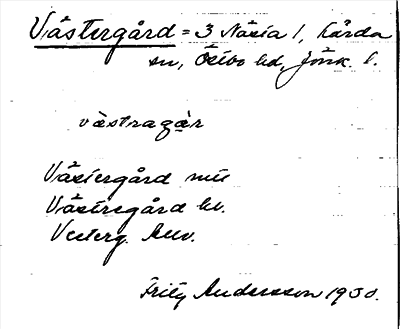 Västergård = 3 Näsia 1, Kärda
sn, Östbo hd, Jönk. l.
västragar
Västergård
Västregård
Vesterg.
Fritz Andersson 1930.